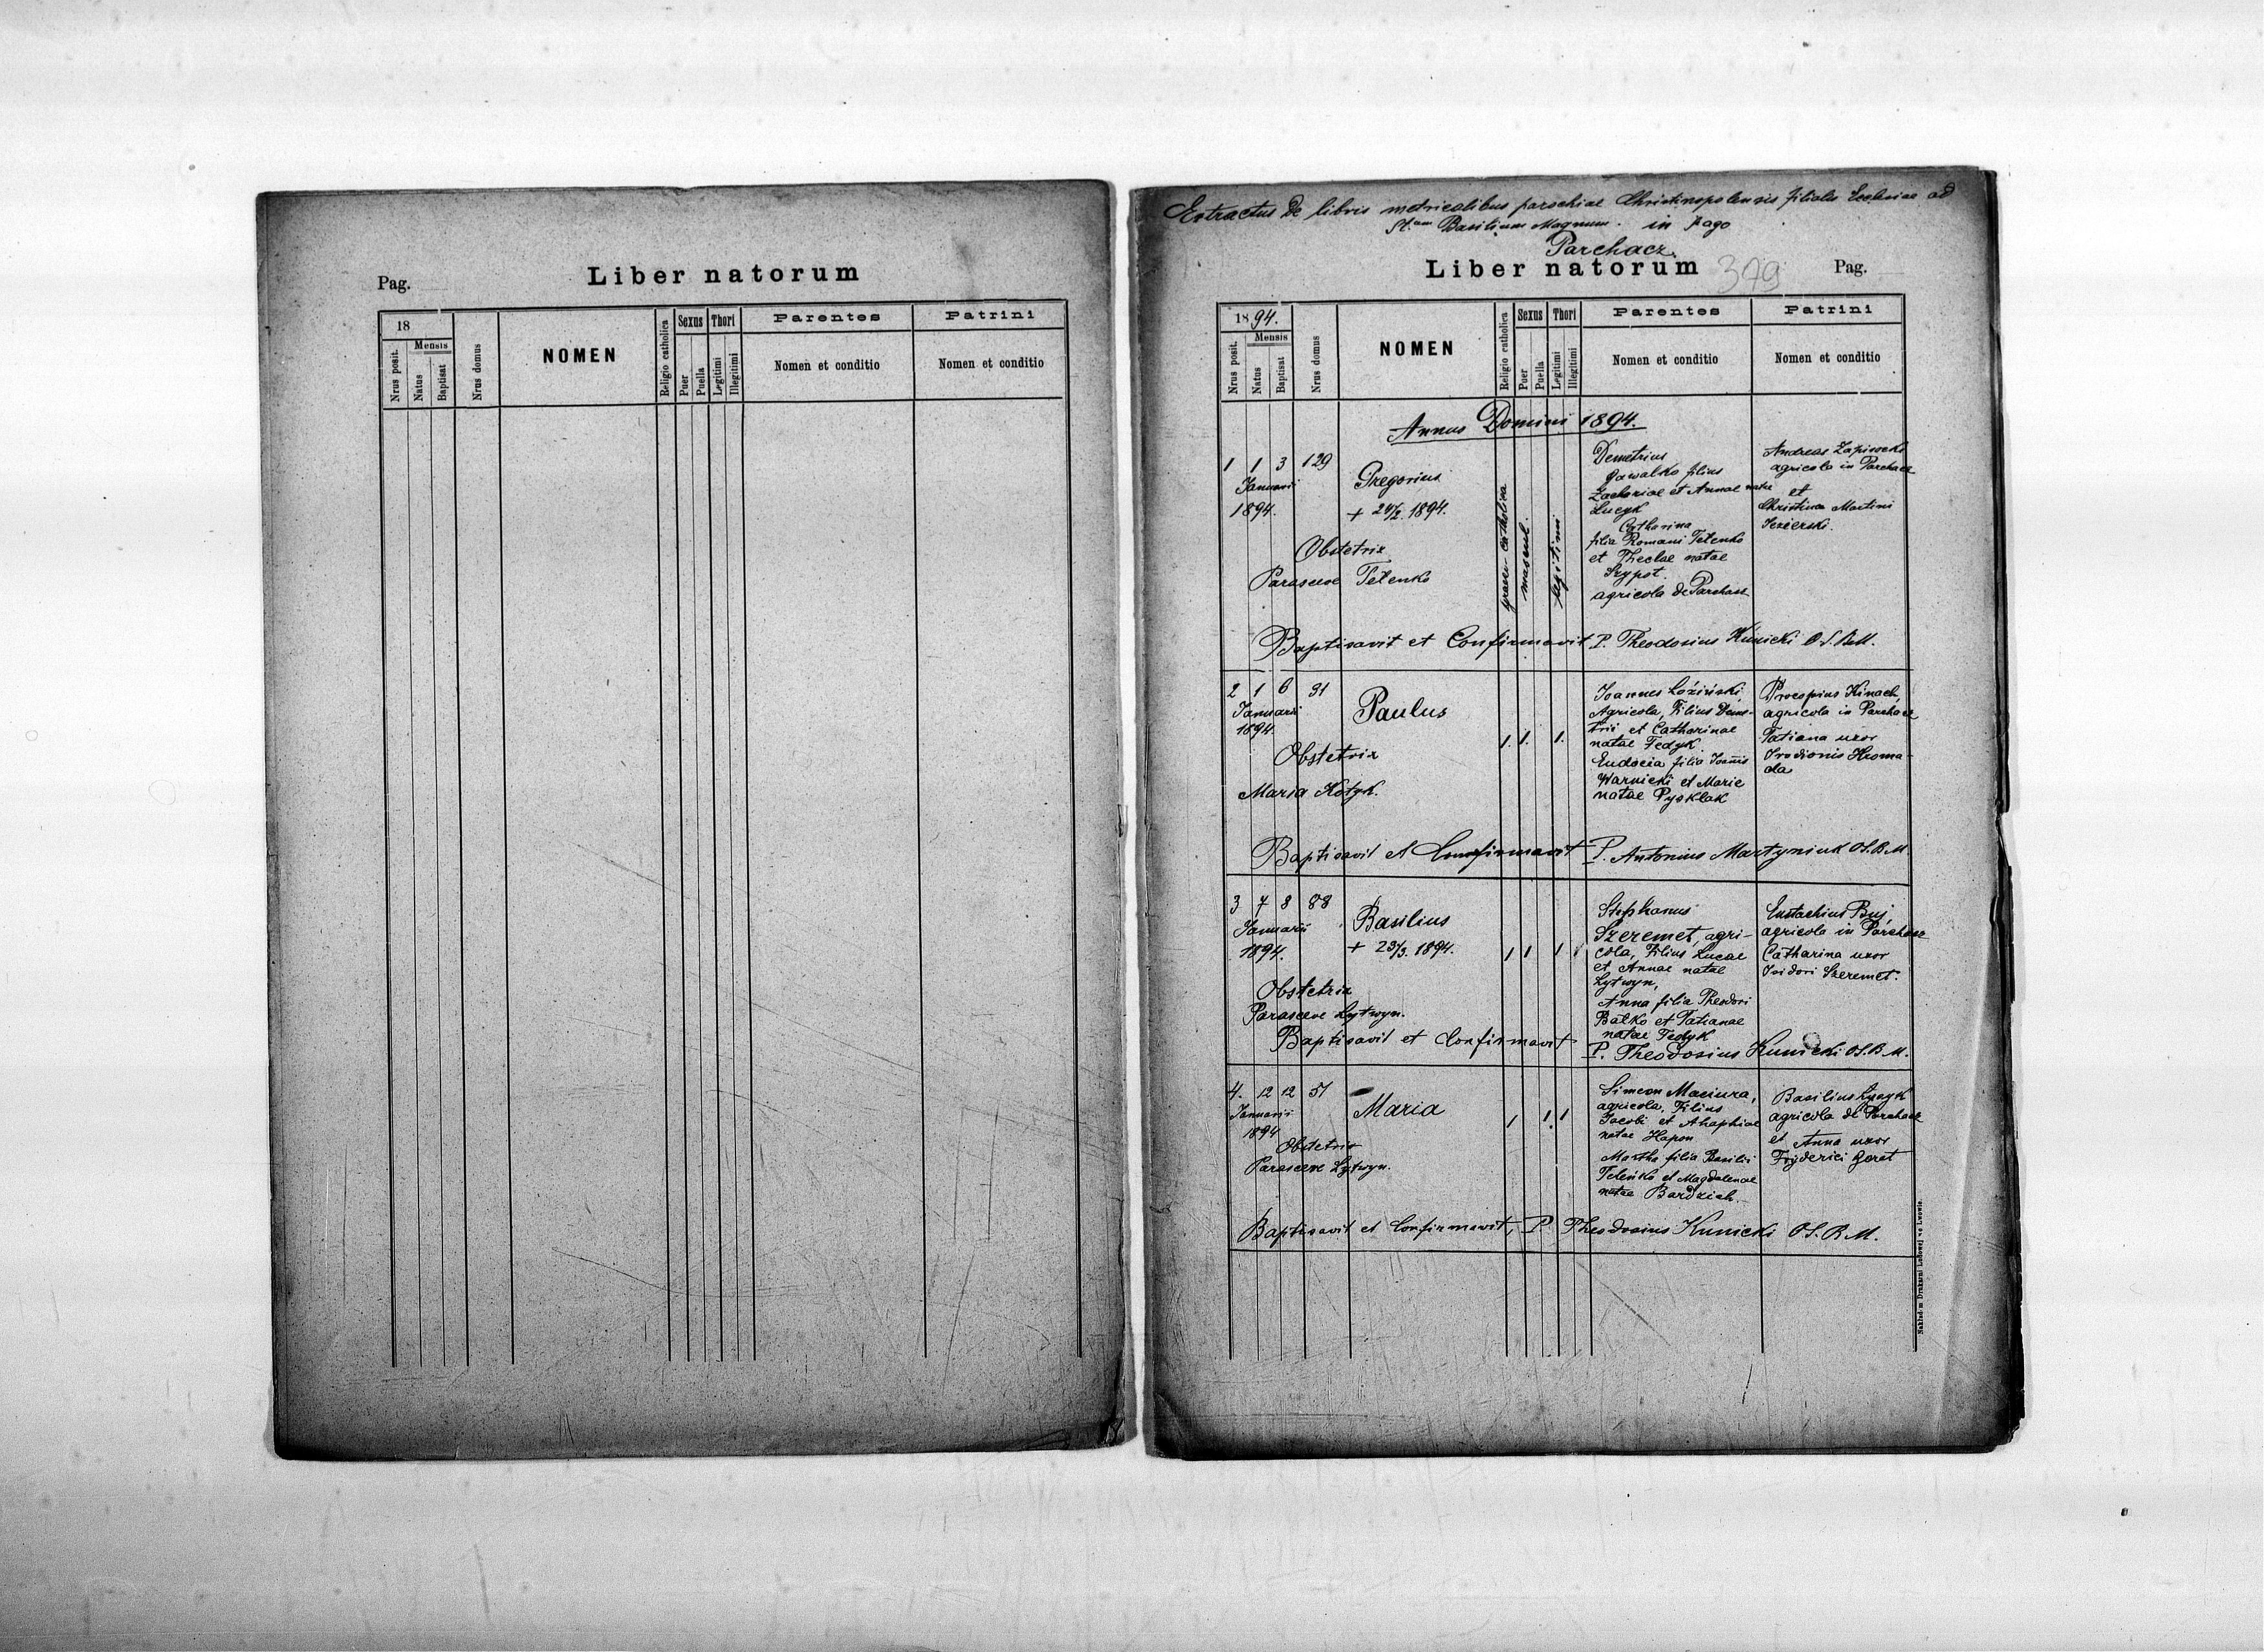 Pag.
Liber natorum
18
Mensis
Nrus posit.
Natus
Baptisat
Nrus domus
NOMEN
Religio catholica
Sexus
Puer
Puella
Thori
Legitimi
Illegitimi
Parentes
Nomen et conditio
Patrini
Nomen et conditio
Extractus de libris metricalibus parochiae Christinopolensis filialis Ecclesiae ad
St.am Basilium Magnum. in pago
Parchacz.
Liber natorum
379
Pag.
1894.
Mensis
Nrus posit.
Natus
Baptisat
Nrus domus
NOMEN
Religio catholica
Sexus
Puer
Puella
Thori
Legitimi
Illegitimi
Parentes
Nomen et conditio
Patrini
Nomen et conditio
Annus Domini 1894.
1 1 3 129
Januarii
1894.
Gregorius
+ 24/2. 1894.
Obstetrix
Parasceve Tetenko
graeco-catholica
mascul.
legitimi
Demetrius
Gawalko filius
Zachariae et Annae natae
Lucyk
Catharina
filia Romani Tetenko
et Theclae natae
Szypot.
agricola de Parchacz
Andreas
agricola in Parchacz
et
Christina Martini
Jezierski.
Baptisavit et Confirmavit P. Theodosius Kunicki O.S.B.M.
2 1 6 91
Januarii
1894.
Paulus
Obstetrix
Maria Kotyk.
1. 1. 1.
Joannes Łoziński,
Agricola, Filius Deme-
trii et Catharinae
natae Fedyk.
Eudocia filia Joannis
Warnicki et Marie
natae Pysklak
Procopius Kinach,
agricola in Parchacz
Tatiana uxor
Irodionis Hroma-
da
Baptisavit et Confirmavit P. Antonius Martyniuk O.S.B.M.
3 7 8 88
Januarii
1894.
Basilius
+ 23/3. 1894.
Obstetrix
Parasceve Lytwyn.
1 1 1
Stephanus
Szeremet, agri-
cola, Filius Lucae
et Annae natae
Lytwyn,
Anna filia Theodori
Balko et Tatianae
natae Fedyk
Eustachius Buj,
agricola in Parchacz
Catharina uxor
Isidori Szeremet.
Baptisavit et Confirmavit P. Theodosius Kunicki O.S.B.M.
4. 12 12 51
Januarii
1894
Maria
Obstetrix
Parasceve Lytwyn.
1 1. 1
Simeon Maciura,
agricola, Filius
Jacobi et Ahaphiae
natae Hapon
Martha filia Basilii
Tetenko et Magdalenae
natae Bardziak.
Basilius
agricola de Parchacz
et Anna uxor
Fryderici Gerat
Baptisavit et Confirmavit, P. Theodosius Kunicki O.S.B.M.
Nakładem Drukarni Ludowej we Lwowie.